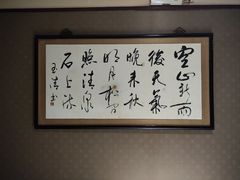 空山新雨
後天氣
晚来秋
明月松間
照清泉
石上流